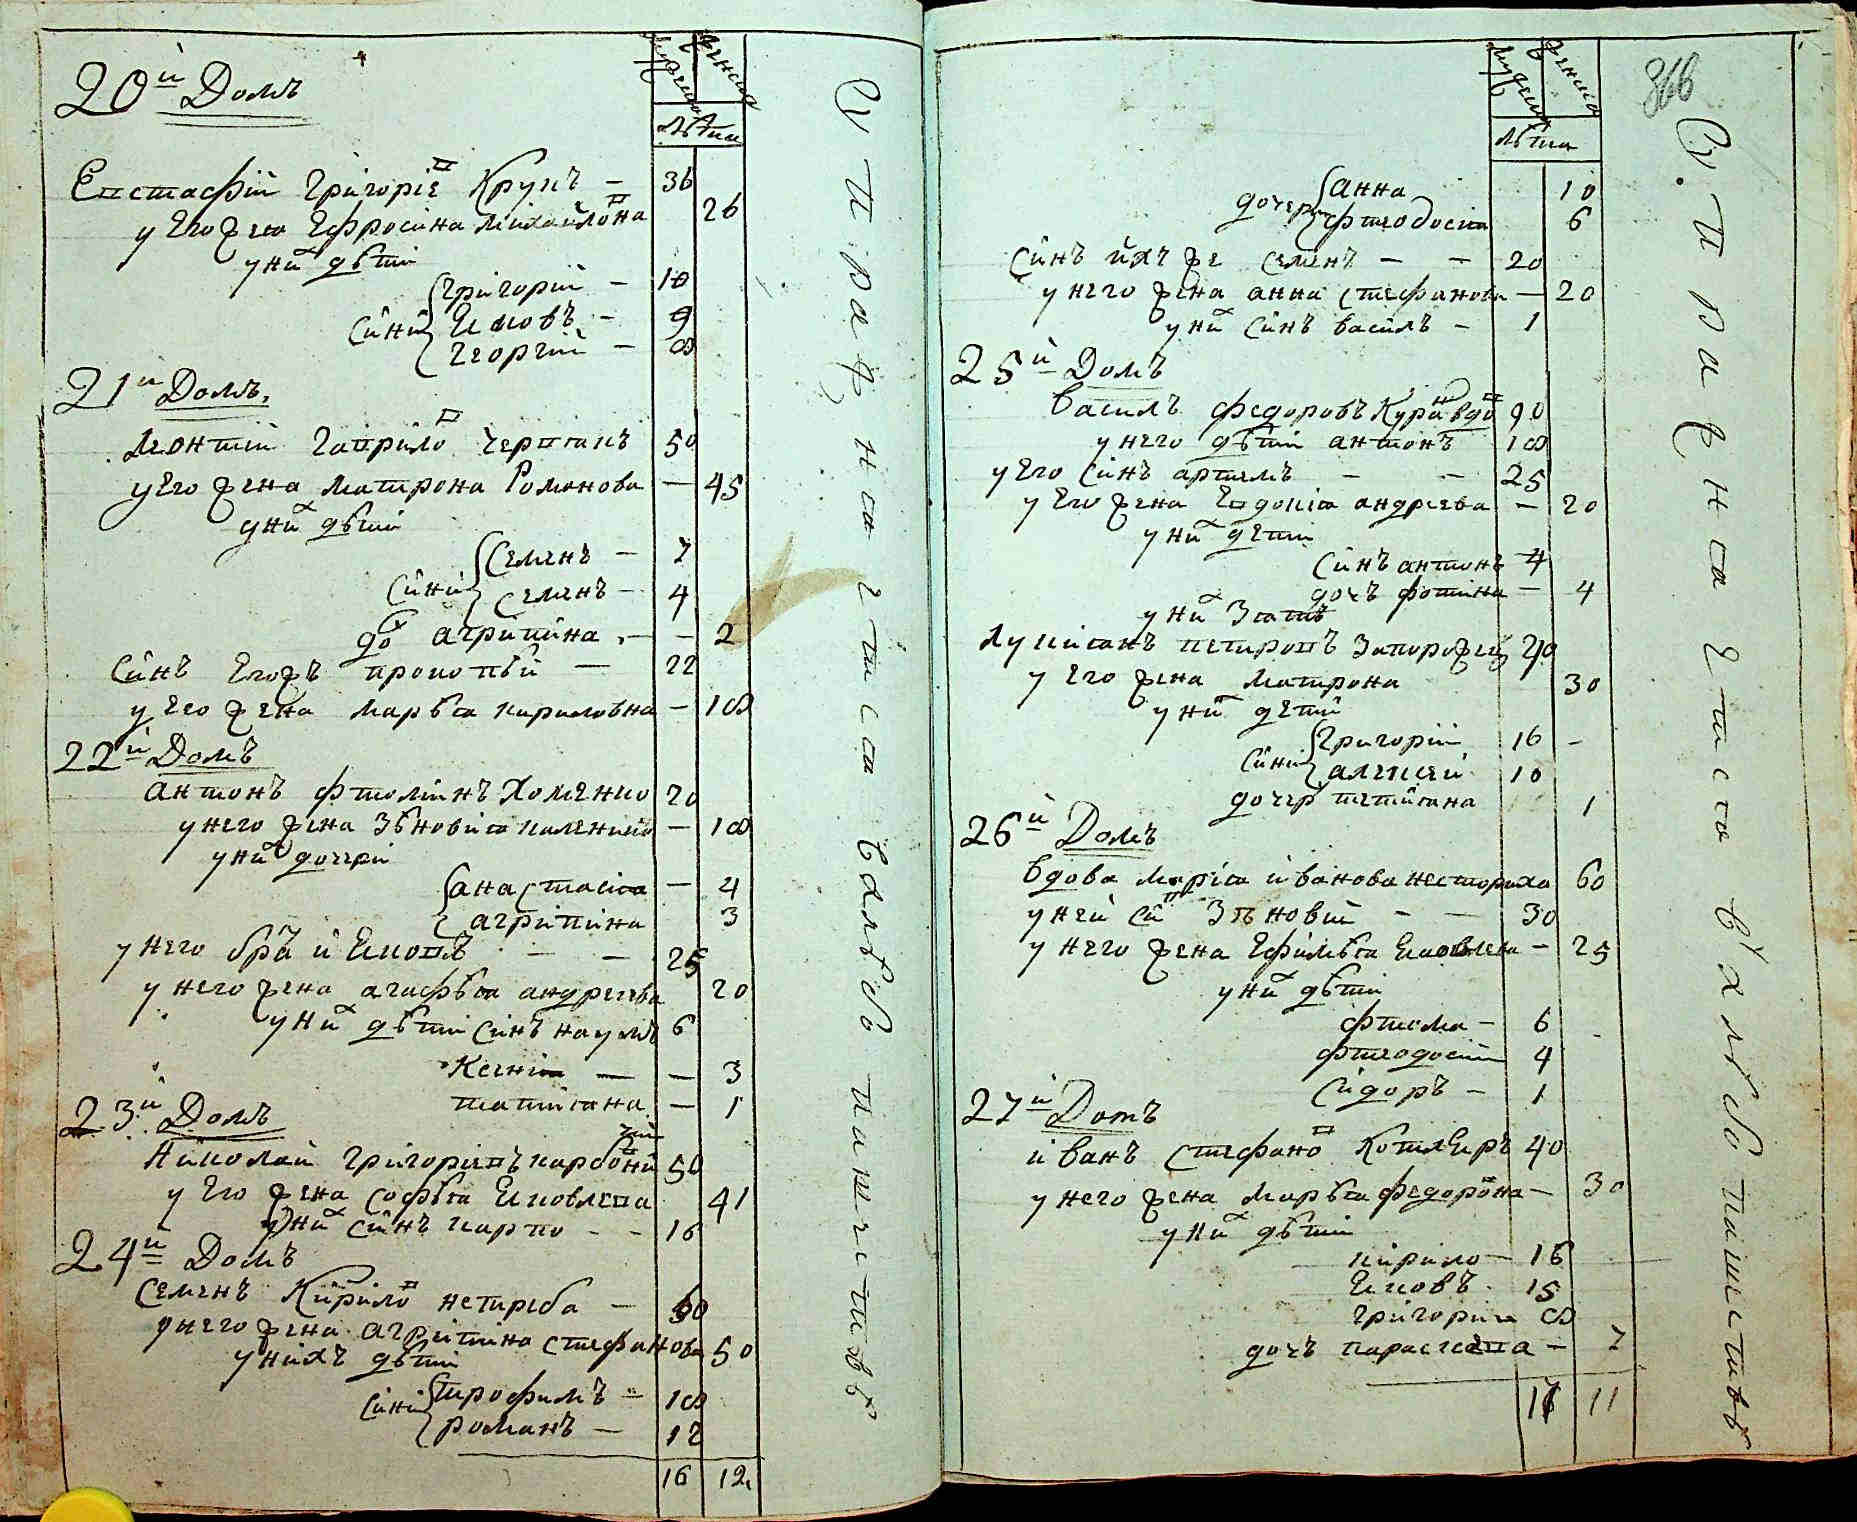 20й Домъ
мужеска женска
лѣта
Евстафій Григоріев Крукъ – 36
у Его жена Ефросина Михайлона 26
у них дѣти
сини Григорій – 10
Еиковъ – 9
Георгий – 8
21й Домъ.
Леонтій Гаврилов 50
у Его жена Матрона Романова – 45
у них дѣти
сини Семенъ – 7
Семенъ – 4
до агрипина – – 2
синъ прокопъй – 22
у Его жена Маръя кириловна – 18
22й Домъ
антонъ фтоминъ Хоменко 20
у него жена Зѣновия – 18
у них дочери
анастасия – 4
агрипина 3
у него бра й Еиковъ – – 25
у него жена агафѣя андреева 20
у них дѣти синъ наумъ 6
Ксения – – 3
татияна – 1
23й Домъ
Николай Григориевъ 50
у Его жена софѣя Еиковлева 41
у них синъ карпо – – 16
24й Домъ
семенъ Кирилов нетреба – 60
у него жена агрипина стефанова 50
у нихъ дѣти
сини трофимъ – 18
романъ – 12
16 12.
366
мужеска женска
лѣта
дочери анна 10
фтеодосия 6
синъ йхъ же семенъ – – 20
у него жена анна стефанова – 20
у них синъ василъ – 1
25й Домъ
василъ федоровъ 90
у него дѣти антонъ 18
у Его синъ артемъ – – 25
у Его жена Евдокия андреева – 20
у них дети
синъ антонъ 4
дочъ фотина – 4
у них Зятъ
Лукиянъ петровъ Запорожец 40
у Его жена Матрона 30
у них дети
сини Григорий 16 –
алексей 10
дочер тетияна 1
26й Домъ
вдова Мария иванова несториха 60
у ней си Зѣновий – – 30
у него жена Ефимѣя Еиковлева – 25
у них дѣти
фтома – 6
фтеодосий 4
сидоръ – 1
27й Домъ
иванъ стефанов Котляръ 40
у него жена Маръя федорона – 30
у них дѣти
кирило – 16
Еиковъ 15
григорий 8
дочъ параскева – 7
17 11